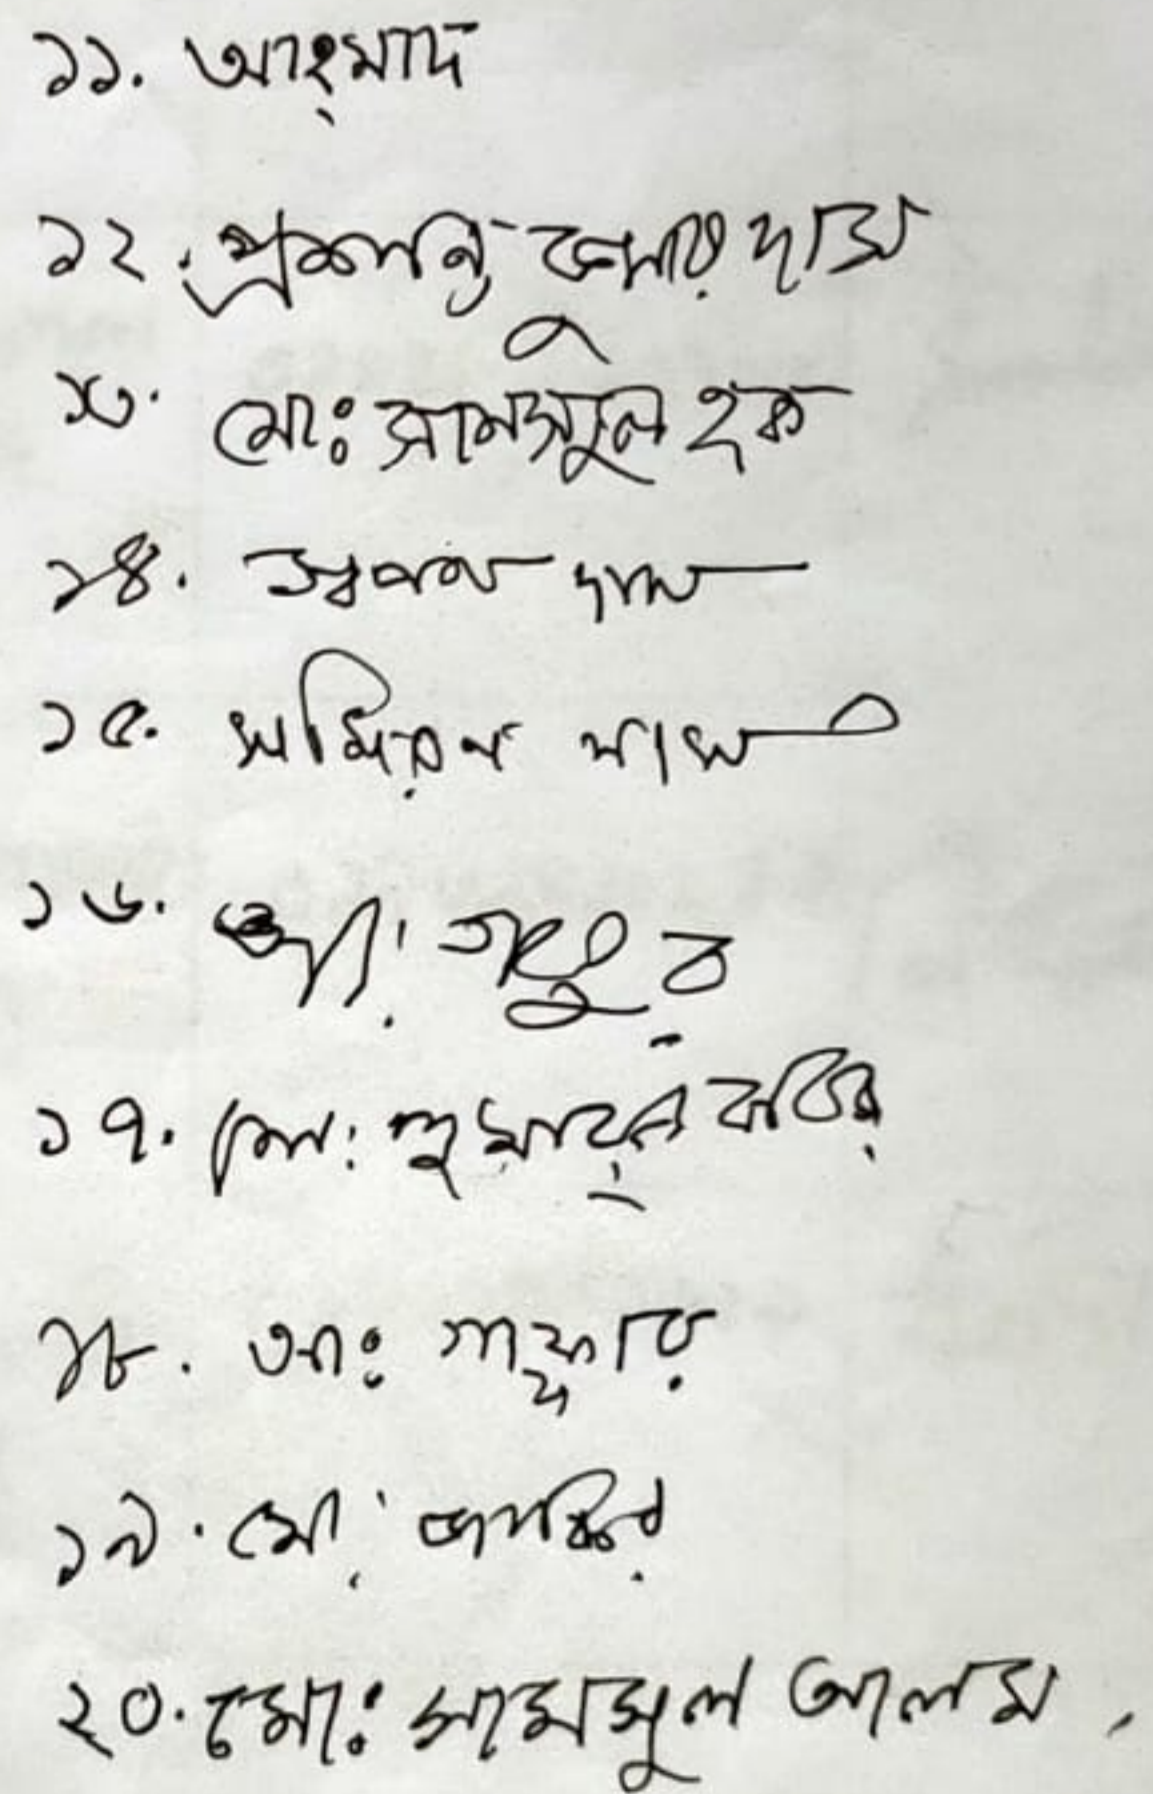 ১১. আহ্মাদ
১২. প্রশান্ত কুমার দাস
১৩. মোঃ সামসুল হক
১৪. স্বপন দাস
১৫. সমিরণ দাস
১৬. আঃ গফুর
১৭. মোঃ হুমায়ূন কবির
১৮. আঃ গাফ্ফার
১৯. মোঃ জাকির
২০. মোঃ সামসুল আলম,